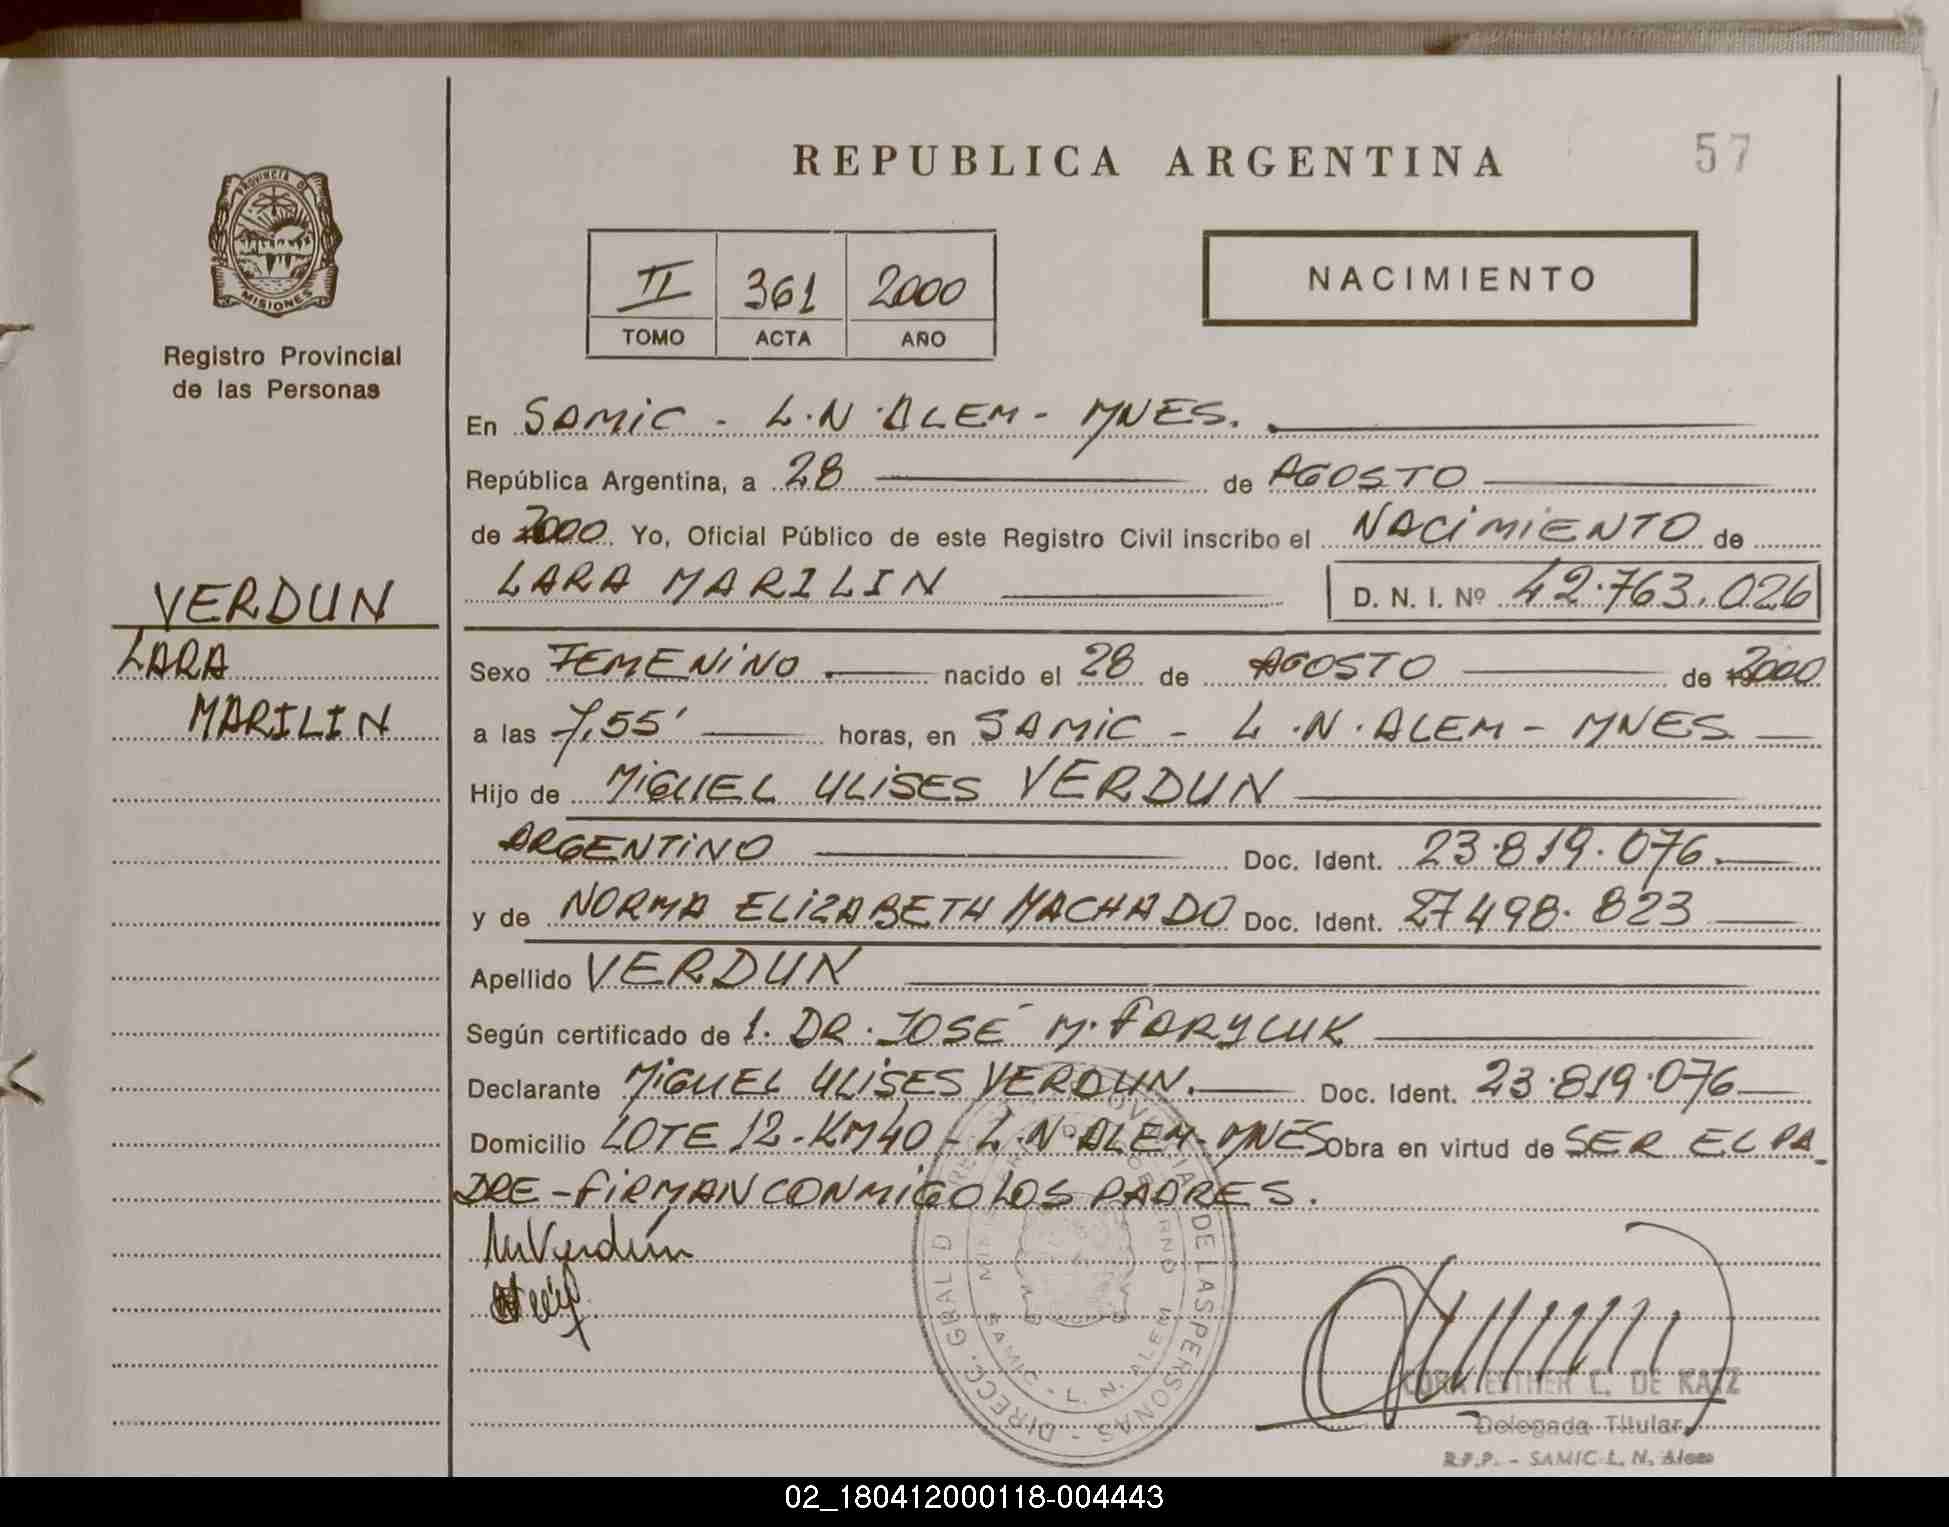 REPUBLICA ARGENTINA
57
PROVINCIA DE
MISIONES
Registro Provincial
de las Personas
NACIMIENTO
II 361 2000
TOMO ACTA AÑO
VERDUN
LARA
MARILIN
En SAMIC - L.N. ALEM - MNES.
República Argentina, a 28 de AGOSTO
de 2000. Yo, Oficial Público de este Registro Civil inscribo el NACIMIENTO de
LARA MARILIN D. N. I. Nº 42.763.026
Sexo FEMENINO nacido el 28 de AGOSTO de 2000
a las 7,55' horas, en SAMIC - L.N. ALEM - MNES
Hijo de MIGUEL ULISES VERDUN
ARGENTINO Doc. Ident. 23.819.076.
y de NORMA ELIZABETH MACHADO Doc. Ident. 27498.823
Apellido VERDUN
Según certificado de 1. DR. JOSÉ M. FARYLUK
Declarante MIGUEL ULISES VERDUN. Doc. Ident. 23.819.076
Domicilio LOTE 12 - KM 40 - L.N. ALEM - MNES Obra en virtud de SER EL PA
DRE - FIRMAN CONMIGO LOS PADRES.
DE LAS PERSONAS - DIRECC. GRAL D
SAMIC - L. N. ALEM
ESTHER C. DE KATZ
Delegada Titular
R.P.P. - SAMIC L. N. Alem
02_180412000118-004443